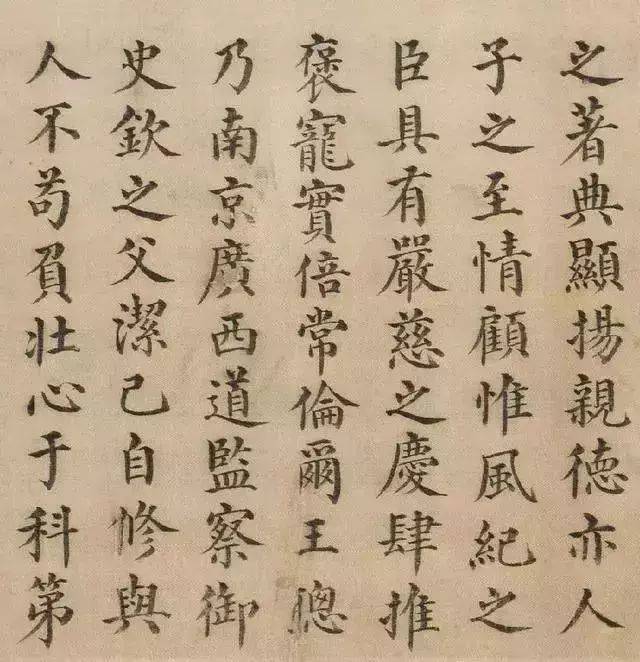 之著典顯揚親德亦人
子之至情顧惟風紀之
臣具有嚴慈之慶肆推
褒寵實倍常倫爾王聰
乃南京廣西道監察御
史欽之父潔己自修與
人不苟負壯心于科第